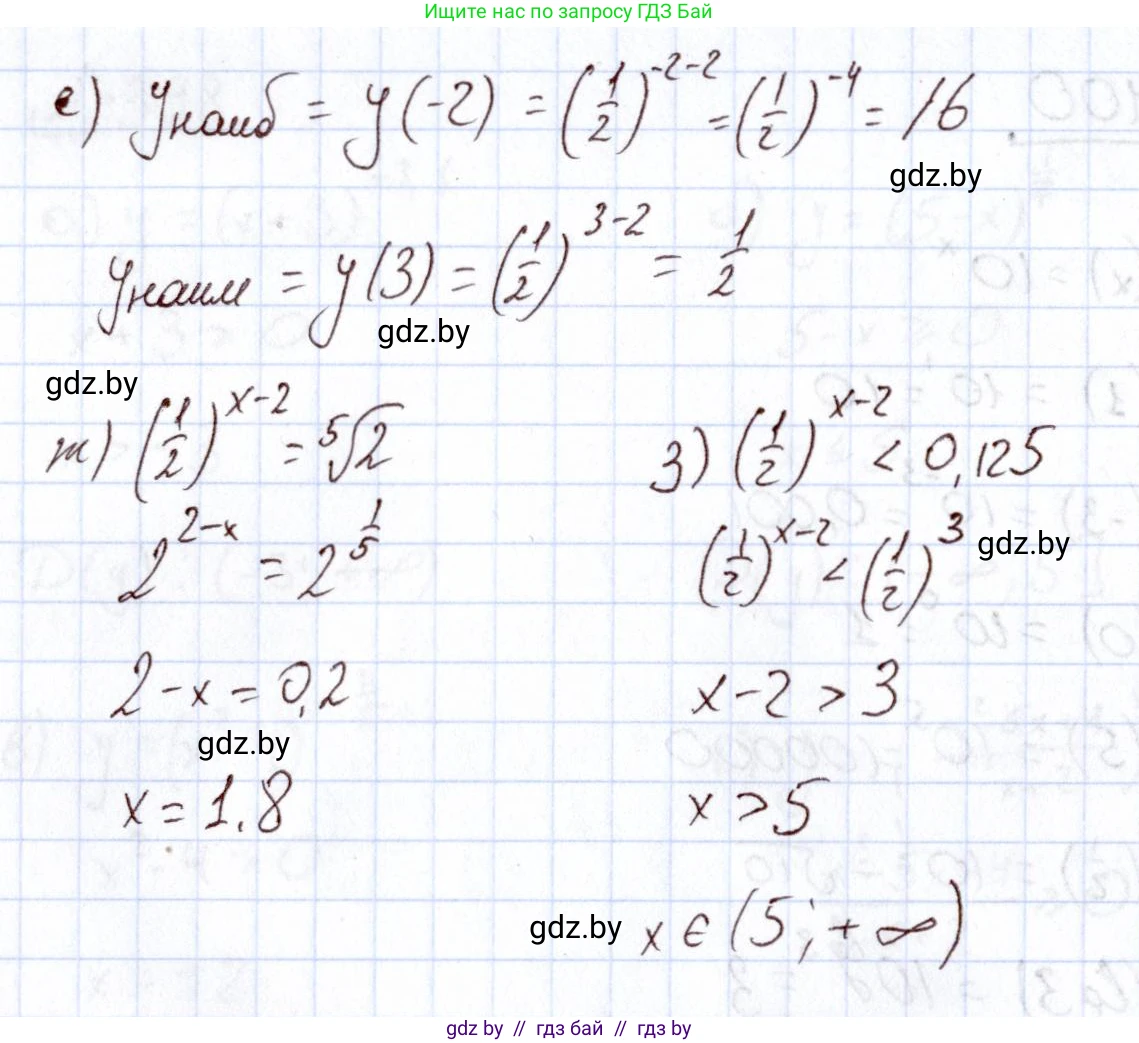 Ищите нас по запросу ГДЗ Бай
е) yнаиб = y(-2) = (1/2)^(-2-2) = (1/2)^(-4) = 16
gdz.by
yнаим = y(3) = (1/2)^(3-2) = 1/2
gdz.by
gdz.by
ж) (1/2)^(x-2) = ⁵√2
2^(2-x) = 2^(1/5)
2 - x = 0,2
gdz.by
x = 1.8
з) (1/2)^(x-2) < 0,125
(1/2)^(x-2) < (1/2)^3
gdz.by
x - 2 > 3
x > 5
gdz.by
x ∈ (5; + ∞)
gdz by // гдз бай // гдз by